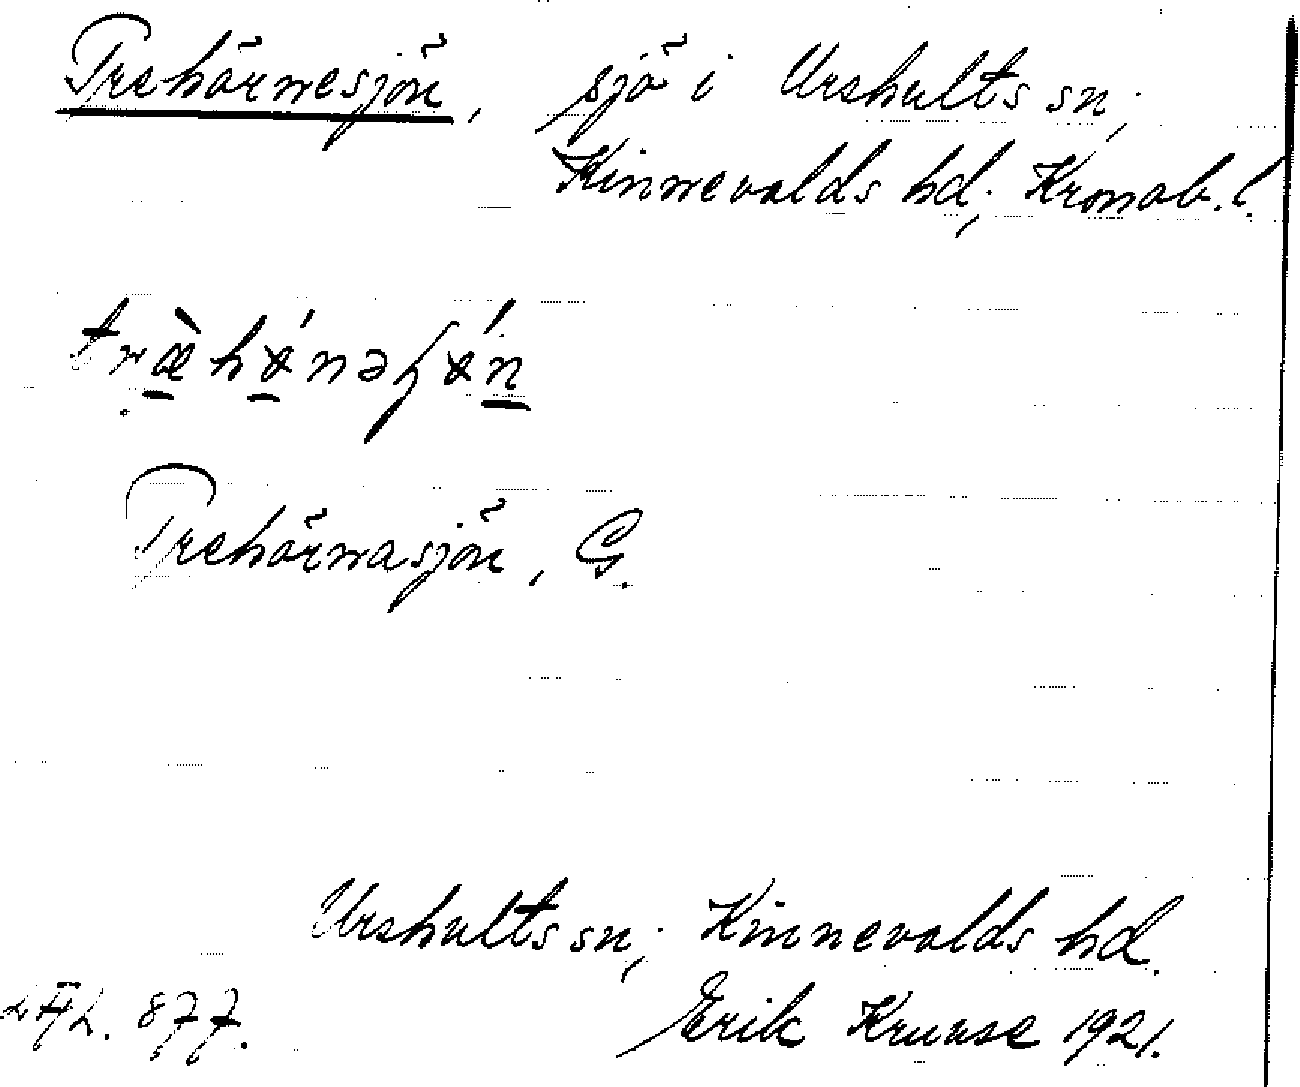 Trehörnesjön, sjö i Urshults sn;
Kinnevalds hd; Kronob. l.
Trehörnasjön, G.
Urshults sn; Kinnevalds hd.
877. Erik Kruuse 1921.